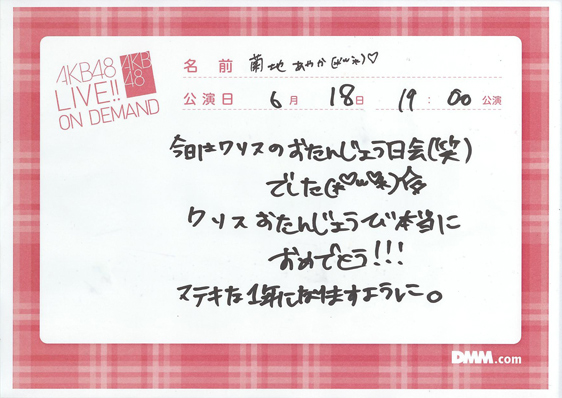 AKB48
LIVE!!
ON DEMAND
AKB
48
名前 菊地 あやか(*´ω`*)♡
公演日 6月 18日 19:00 公演
今日はクリスのおたんじょう日会(笑)
でした(*♡ω♡*)☆
クリスおたんじょうび本当に
おめでとう!!!
ステキな1年になりますように。
DMM.com